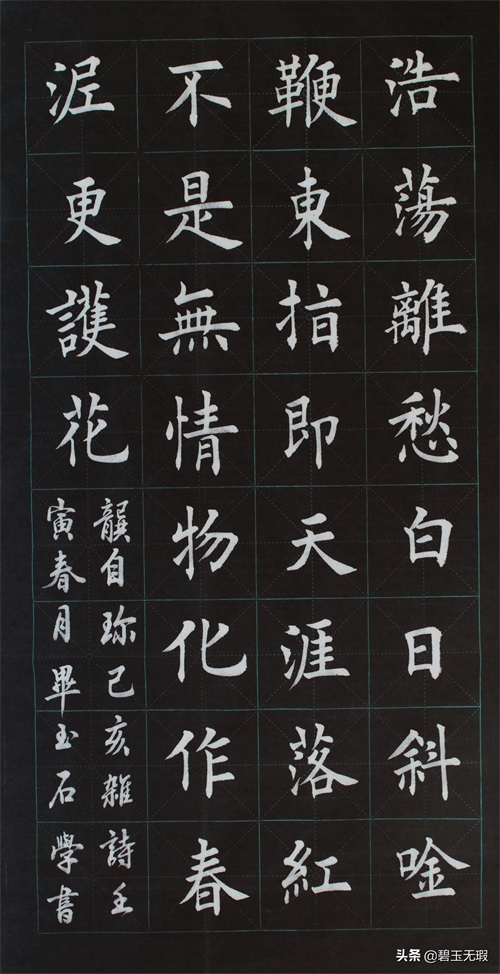 浩蕩離愁白日斜唫
鞭東指即天涯落紅
不是無情物化作春
泥更護花
龔自珍己亥雜詩壬
寅春月畢玉石學書
头条 @碧玉无瑕